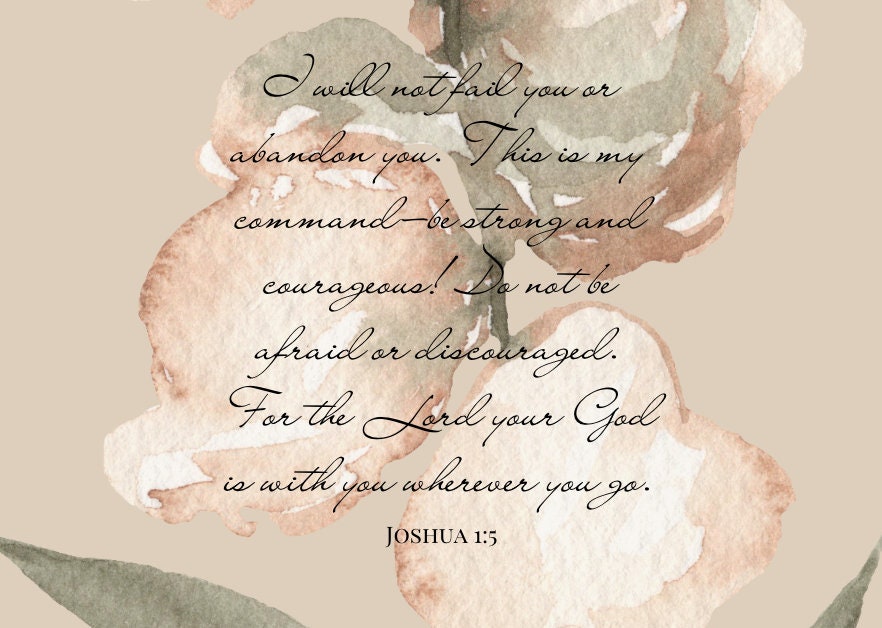 I will not fail you or
abandon you. This is my
command—be strong and
courageous! Do not be
afraid or discouraged.
For the Lord your God
is with you wherever you go.
Joshua 1:5